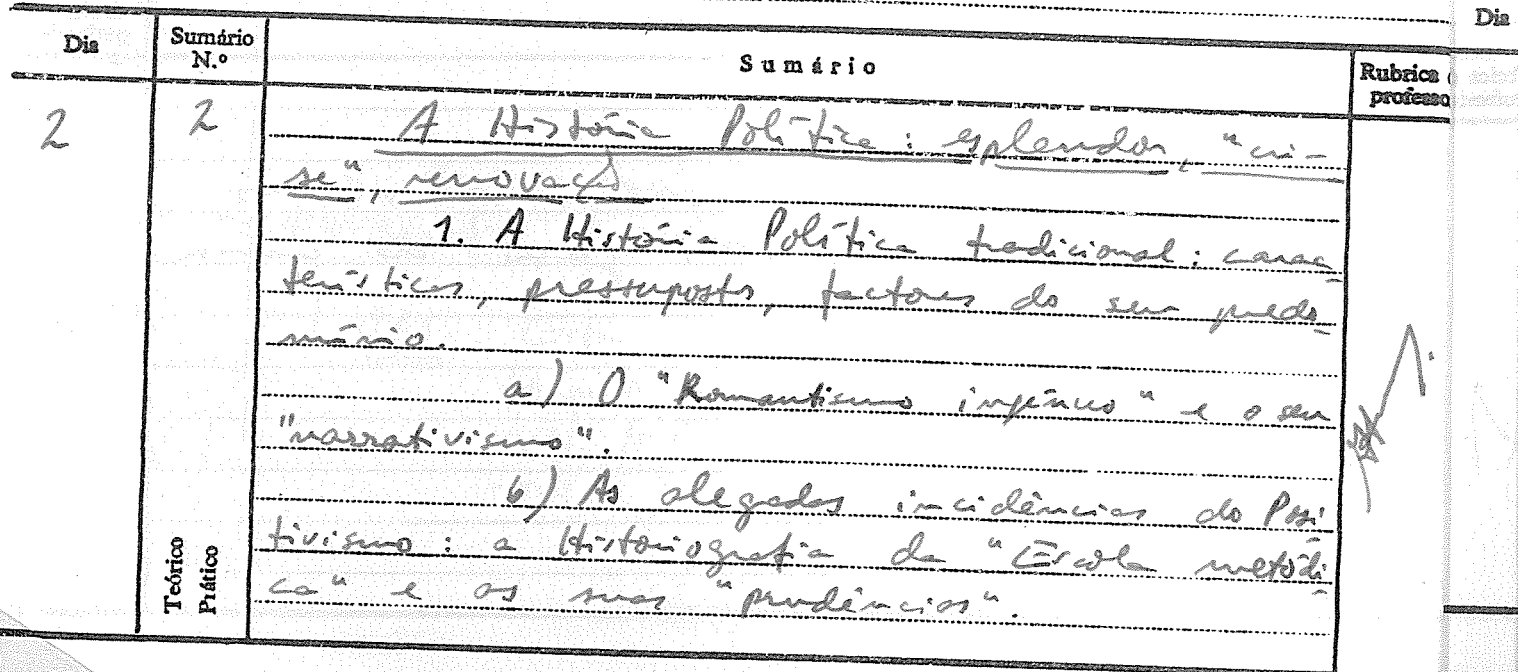 Dia
Dia
Sumário
N.º
Sumário
Rubrica
professo
2
2
A História Política: esplendor, "cri-
se", renovação
1. A História Política tradicional: carac-
terísticas, pressupostos, factores do seu predo-
mínio.
a) O "Romantismo ingénuo" e o seu
"narrativismo".
b) As alegadas incidências do Posi-
tivismo: a Historiografia da "Escola metódi-
ca" e as suas "prudências".
Teórico
Prático